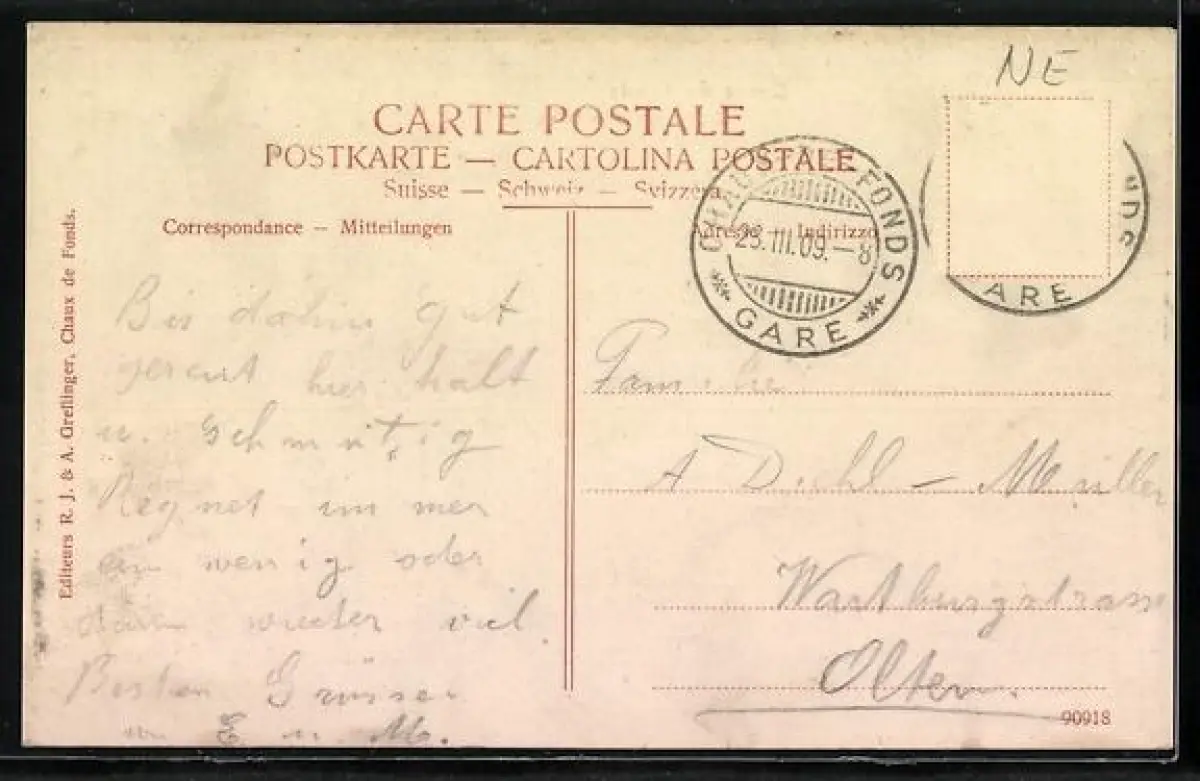 NE
CARTE POSTALE
POSTKARTE — CARTOLINA POSTALE
Suisse — Schweiz — Svizzera
Correspondance – Mitteilungen
Adresse – Indirizzo
CHAUX FONDS
23.III.09.–8
GARE
NDS
ARE
Editeurs R. J. & A. Greßinger, Chaux de Fonds.
Bis dahin gut
gereist hier kalt
u. schmutzig
Regnet immer
ein wenig oder
dann wieder viel.
Besten Grüsse
E u M.
Familie
A Diehl – Müller
Wartburgstrasse
Olten.
90918